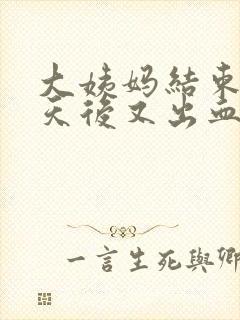 大姨妈結束
天後又出血
一言生死與卿